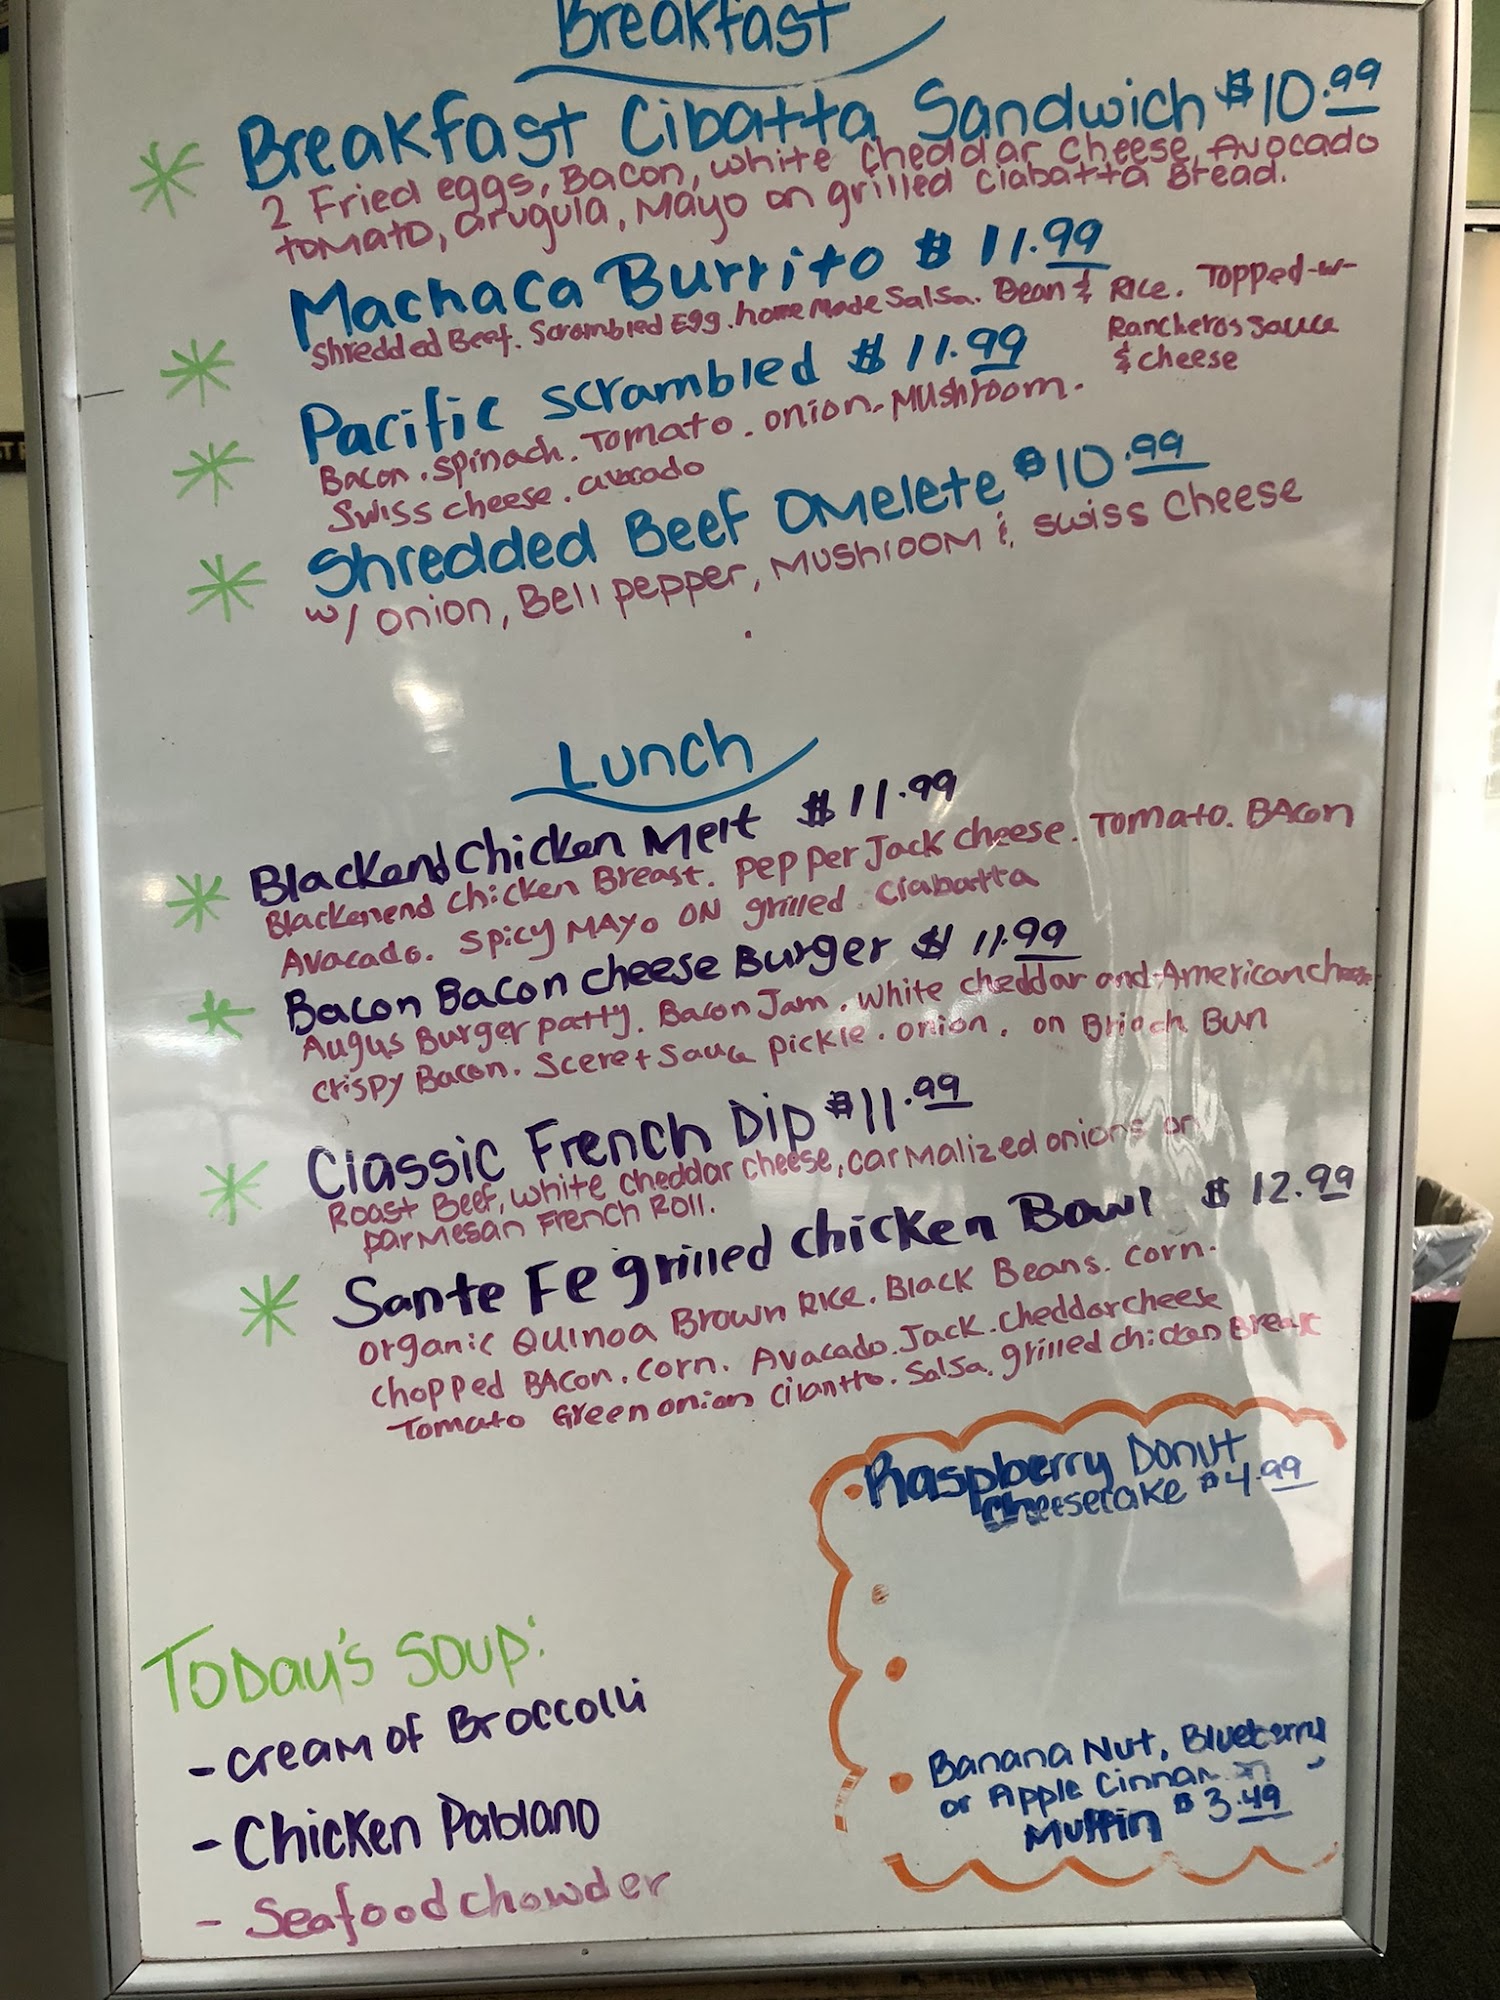 Breakfast
Breakfast Cibatta Sandwich $10.99
2 Fried eggs, Bacon, white cheddar cheese, Avocado
tomato, arugula, Mayo on grilled ciabatta Bread.
Machaca Burrito $11.99
Shredded Beef. Scrambled Egg. home Made Salsa. Bean & Rice. Topped -w-
Rancheros sauce
& cheese
Pacific scrambled $11.99
Bacon. spinach. Tomato. onion. Mushroom.
Swiss cheese. avocado
Shredded Beef Omelete $10.99
w/ onion, Bell pepper, Mushroom & swiss cheese
Lunch
Blackend Chicken Melt $11.99
Blackenend chicken Breast. pepper Jack cheese. Tomato. BAcon
Avacado. spicy MAyo ON grilled ciabatta
Bacon Bacon cheese Burger $11.99
Augus Burger patty. Bacon Jam. white cheddar and American cheese
crispy Bacon. Sceret sauce pickle. onion. on Brioch Bun
Classic French Dip $11.99
Roast Beef, white cheddar cheese, carmalized onions on
parmesan French Roll.
Sante Fe grilled chicken Bowl $12.99
organic Quinoa Brown Rice. Black Beans. corn.
chopped BAcon. corn. Avacado. Jack. cheddar cheese
Tomato Green onion cilantto. Salsa. grilled chicken Breast
Raspberry Donut
cheesecake $4.99
Today's Soup:
- cream of Broccolli
- Chicken Pablano
- Seafood chowder
Banana Nut, Blueberry
or Apple Cinnamon
Muffin $3.49